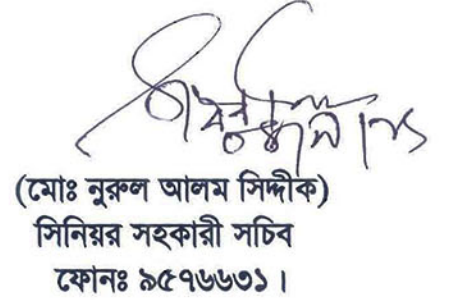 (মোঃ নুরুল আলম সিদ্দীক)
সিনিয়র সহকারী সচিব
ফোনঃ ৯৫৭৬৬৩১।